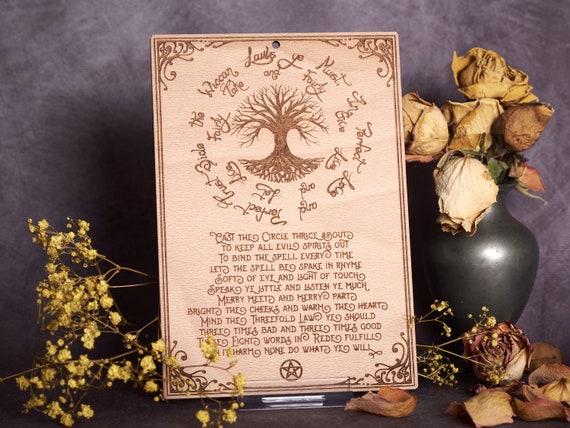 Bide the Wiccan Laws ye Must
In Perfect Love and Perfect Trust
Live and Let Live
Fairly Take and Fairly Give
Cast the Circle thrice about
to keep all evil spirits out
To bind the spell every time
let the spell be spake in rhyme
Soft of eye and light of touch
Speak ye little and listen ye much
Merry meet and merry part
bright the cheeks and warm the heart
Mind the Threefold Law yes should
three times bad and three times good
Eight words in Rede fulfill
harm none do what ye will